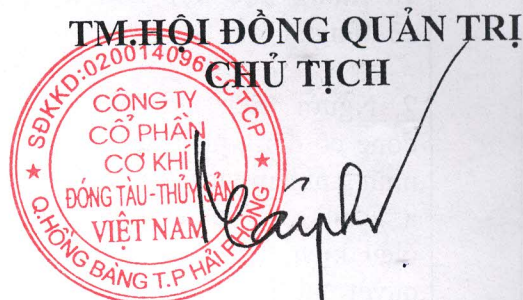 TM.HỘI ĐỒNG QUẢN TRỊ
CHỦ TỊCH
SĐKKD:0200140967-CTCP
CÔNG TY
CỔ PHẦN
CƠ KHÍ
ĐÓNG TÀU-THỦY SẢN
VIỆT NAM
Q.HỒNG BÀNG T.P HẢI PHÒNG